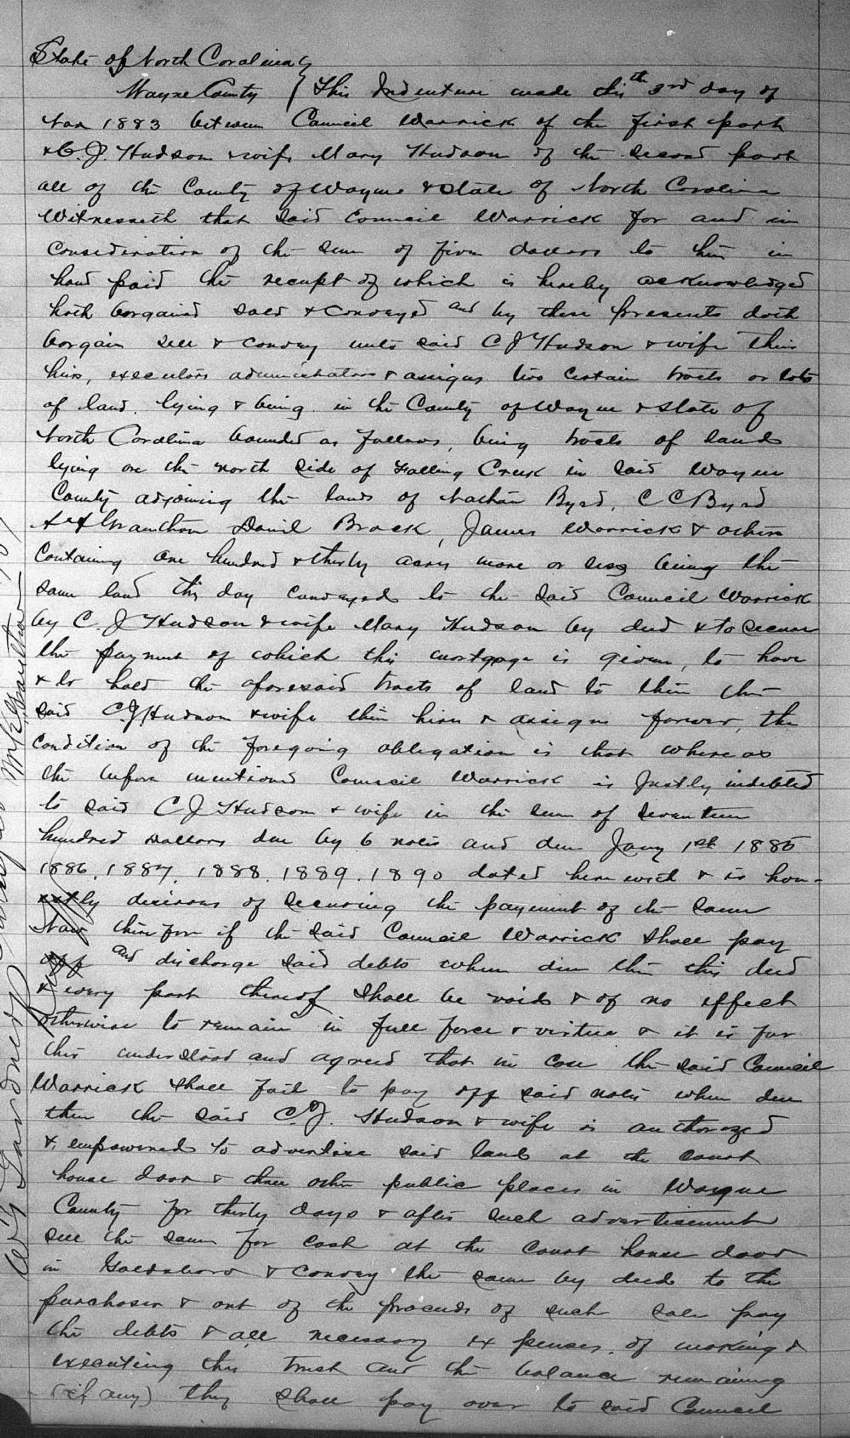 State of North Carolina
Wayne County } This Indenture made this the 3rd day of
Nov 1883 between Council Warrick of the first part
& C. J. Hudson & wife Mary Hudson of the second part
all of the County of Wayne & State of North Carolina
Witnesseth that said Council Warrick for and in
consideration of the sum of five dollars to him in
hand paid the receipt of which is hereby acknowledged
hath bargained sold & conveyed and by these presents doth
bargain sell & convey unto said C J Hudson & wife their
heirs, executors administrators & assigns two certain tracts or lots
of land lying & being in the County of Wayne & State of
North Carolina bounded as follows, being tracts of lands
lying on the north side of Falling Creek in said Wayne
County adjoining the lands of Nathan Byrd, C C Byrd
Grantham Daniel Brock, James Warrick & others
containing one hundred & thirty acres more or less being the
same land this day conveyed to the said Council Warrick
by C. J Hudson & wife Mary Hudson by deed & to secure
the payment of which this mortgage is given, to have
& to hold the aforesaid tracts of land to them the
said C J Hudson & wife them heirs & assigns forever, the
condition of the foregoing obligation is that whereas
the before mentioned Council Warrick is justly indebted
to said C J Hudson & wife in the sum of seventeen
hundred dollars due by 6 notes and due Jany 1st 1885
1886, 1887, 1888, 1889, 1890 dated herewith & is hon-
estly desirous of securing the payment of the same
Now therefore if the said Council Warrick shall pay
off and discharge said debts when due then this deed
& every part thereof shall be void & of no effect
otherwise to remain in full force & virtue & it is fur
ther understood and agreed that in case the said Council
Warrick shall fail to pay off said notes when due
then the said C. J. Hudson & wife is authorized
& empowered to advertise said land at the court
house door & three other public places in Wayne
County for thirty days & after such advertisement
sell the same for cash at the court house door
in Goldsboro & convey the same by deed to the
purchaser & out of the proceeds of such sale pay
the debts & all necessary expenses of making &
executing this trust and the balance remaining
(if any) they shall pay over to said Council